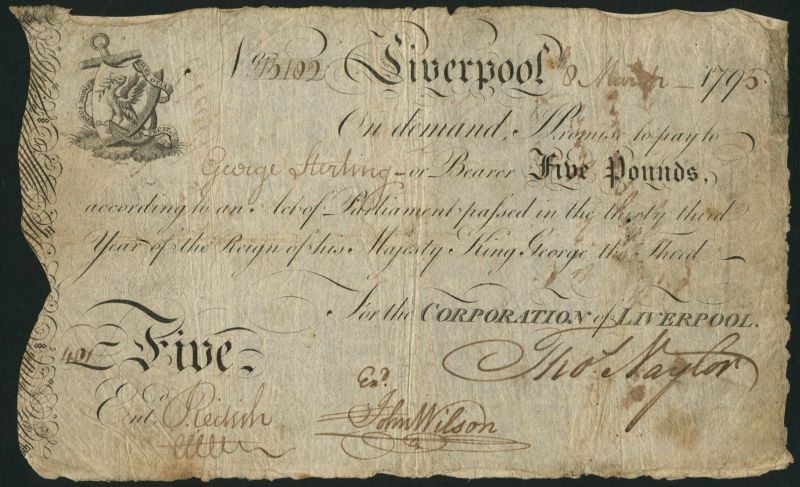 No B5102 Liverpool 8 March 1795
On demand, I Promise to pay to
George Sterling or Bearer Five Pounds,
according to an Act of Parliament passed in the thirty third
Year of the Reign of his Majesty King George the Third
For the CORPORATION of LIVERPOOL.
Five
Thos. Naylor
Entd.
Exd.
John Wilson